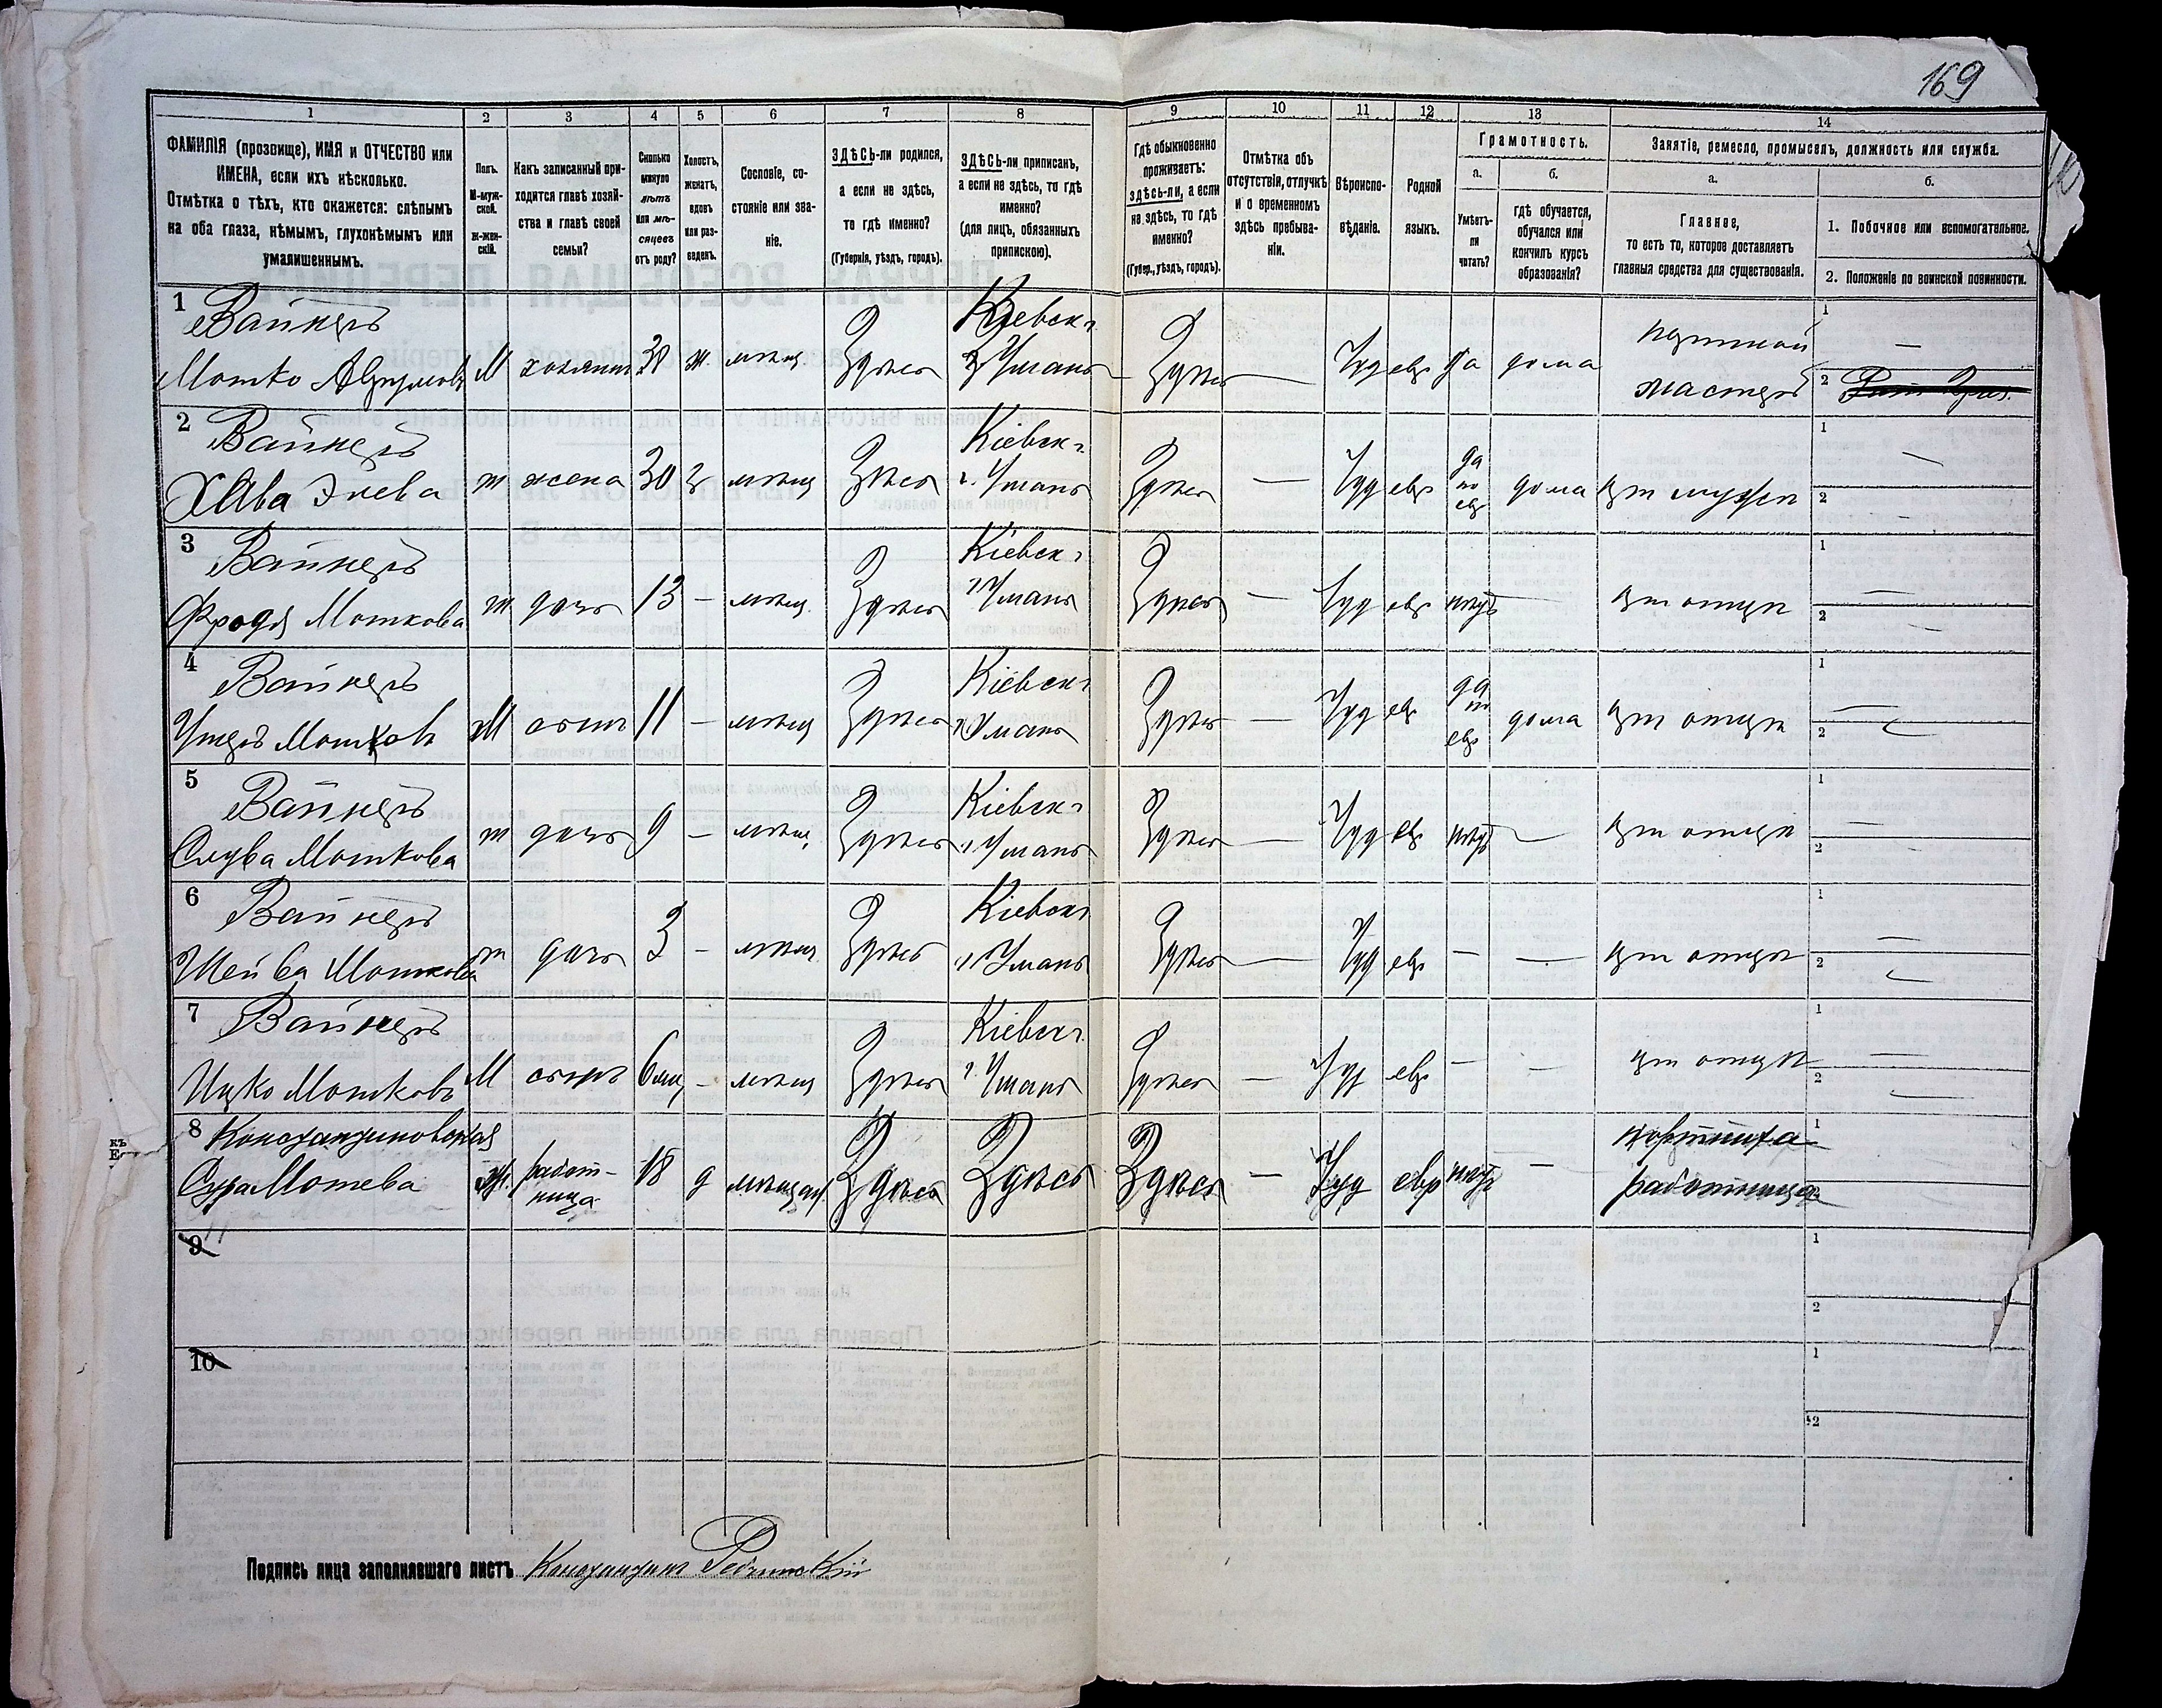 169
1 2 3 4 5 6 7 8 9 10 11 12 13 14
ФАМИЛІЯ (прозвище), ИМЯ и ОТЧЕСТВО или
ИМЕНА, если ихъ нѣсколько.
Отмѣтка о тѣхъ, кто окажется: слѣпымъ
на оба глаза, нѣмымъ, глухонѣмымъ или
умалишеннымъ.
Полъ.
М-муж-
ской.
ж-жен-
скій.
Какъ записанный при-
ходится главѣ хозяй-
ства и главѣ своей
семьи?
Сколько
минуло
лѣтъ
или мѣ-
сяцевъ
отъ роду?
Холостъ,
женатъ,
вдовъ
или раз-
веденъ.
Сословіе, со-
стояніе или зва-
ніе.
ЗДѢСЬ-ли родился,
а если не здѣсь,
то гдѣ именно?
(Губернія, уѣздъ, городъ).
ЗДѢСЬ-ли приписанъ,
а если не здѣсь, то гдѣ
именно?
(для лицъ, обязанныхъ
припискою).
Гдѣ обыкновенно
проживаетъ:
здѣсь-ли, а если
не здѣсь, то гдѣ
именно?
(Губер., уѣздъ, городъ).
Отмѣтка объ
отсутствіи, отлучкѣ
и о временномъ
здѣсь пребыва-
ніи.
Вѣроиспо-
вѣданіе.
Родной
языкъ.
Грамотность.
а.
Умѣетъ-
ли
читать?
б.
гдѣ обучается,
обучался или
кончилъ курсъ
образованія?
Занятіе, ремесло, промыселъ, должность или служба.
а.
Главное,
то есть то, которое доставляетъ
главныя средства для существованія.
б.
1. Побочное или вспомогательное.
2. Положеніе по воинской повинности.
1 Вайнеръ Кіевск г. 1
Мошко М хозяинъ 38 ж. мѣщ Здѣсь г Умань Здѣсь — Іуд евр да дома мастеръ 2
2 Вайнеръ Кіевск г. да 1
Хава ж жена 30 з мѣщ Здѣсь г. Умань Здѣсь — Іуд евр по евр дома при мужѣ 2
3 Вайнеръ Кіевск г. 1
Фродя Мошкова ж дочь 13 — мѣщ. Здѣсь г Умань Здѣсь — Іуд евр нѣтъ — при отцѣ 2
4 Вайнеръ Кіевск г. да 1
Мошковъ М сынъ 11 — мѣщ Здѣсь г Умань Здѣсь — Іуд евр по евр дома при отцѣ 2
5 Вайнеръ Кіевск г. 1
Слува Мошкова ж дочь 9 — мѣщ. Здѣсь г. Умань Здѣсь — Іуд евр нѣтъ — при отцѣ 2
6 Вайнеръ Кіевск г. 1
Шейва Мошкова ж дочь 3 — мѣщ. Здѣсь г Умань Здѣсь — Іуд евр — — при отцѣ 2
7 Вайнеръ Кіевск г. 1
Ицко Мошковъ М сынъ 6 мѣц — мѣщ Здѣсь г. Умань Здѣсь — Іуд евр — — при отцѣ 2
8 Константиновская портниха 1
Сура Мошева Ж. работ-ница 18 д мѣщан Здѣсь Здѣсь Здѣсь — Іуд евр нѣтъ — работница 2
9 1
2
10 1
2
Подпись лица заполнявшаго листъ Константин